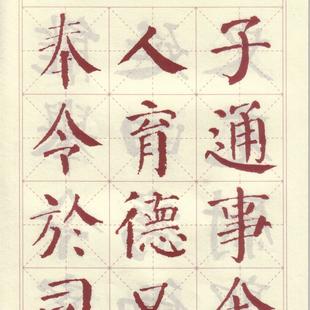 子通事舍
人育德又
奉令於司